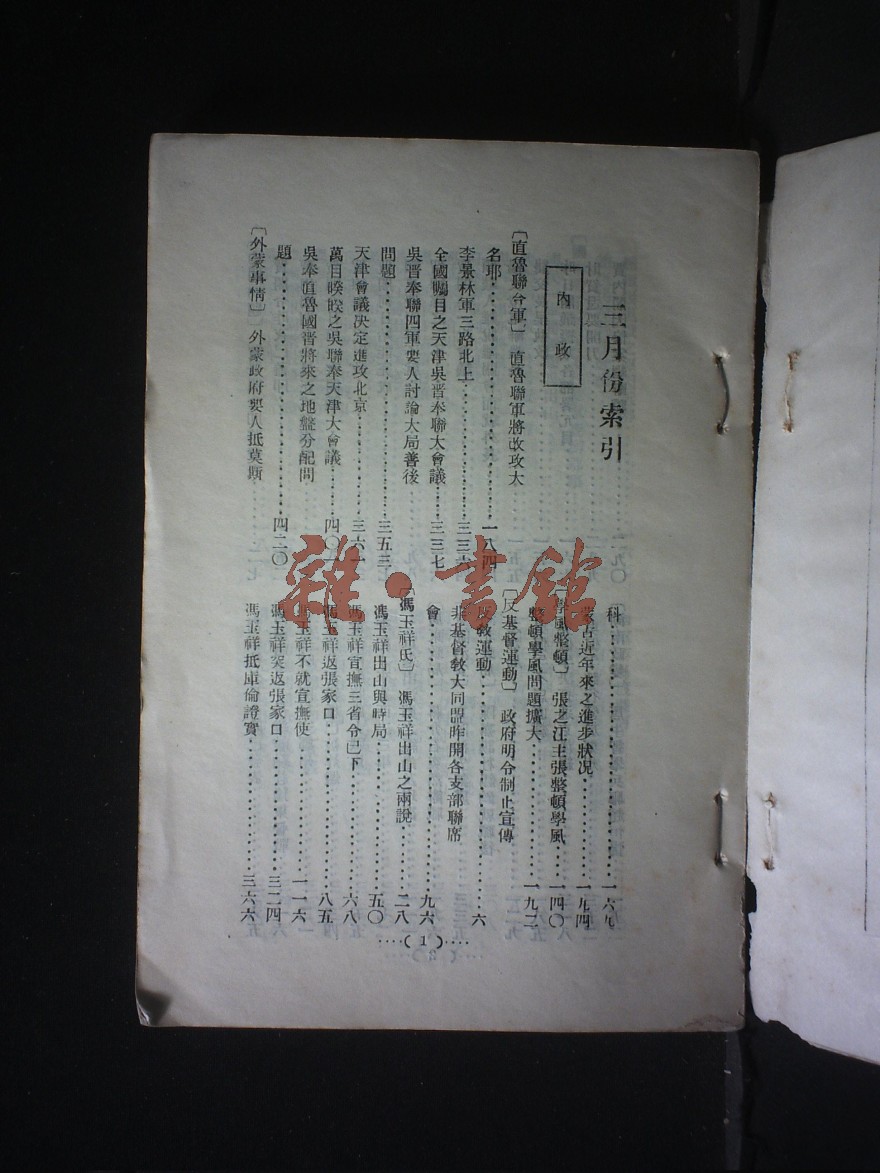 三月份索引
內政
〔直魯聯合軍〕 直魯聯軍將改攻大
名耶……一八四
李景林軍三路北上……三三六
全國矚目之天津吳晉奉聯大會議……三三七
吳晉奉聯四軍要人討論大局善後
問題……三五三
天津會議決定進攻北京……三六一
萬目睽睽之吳聯奉天津大會議……四〇
吳奉直魯國晉將來之地盤分配問
題……四二〇
〔外蒙事情〕 外蒙政府要人抵莫斯
科……一六九
蒙古近年來之進步狀況……一九四
學風整頓〕 張之江主張整頓學風……一四〇
整頓學風問題擴大……一九二
〔反基督運動〕 政府明令制止宣傳
反教運動……六
非基督教大同盟昨開各支部聯席
會……九六
〔馮玉祥氏〕 馮玉祥出山之兩說……二八
馮玉祥出山與時局……五〇
馮玉祥宣撫三省令已下……六八
馮玉祥返張家口……八五
馮玉祥不就宣撫使……一一六
馮玉祥突返張家口……三二四
馮玉祥抵庫倫證實……三六六
…(1)…
雜·書館